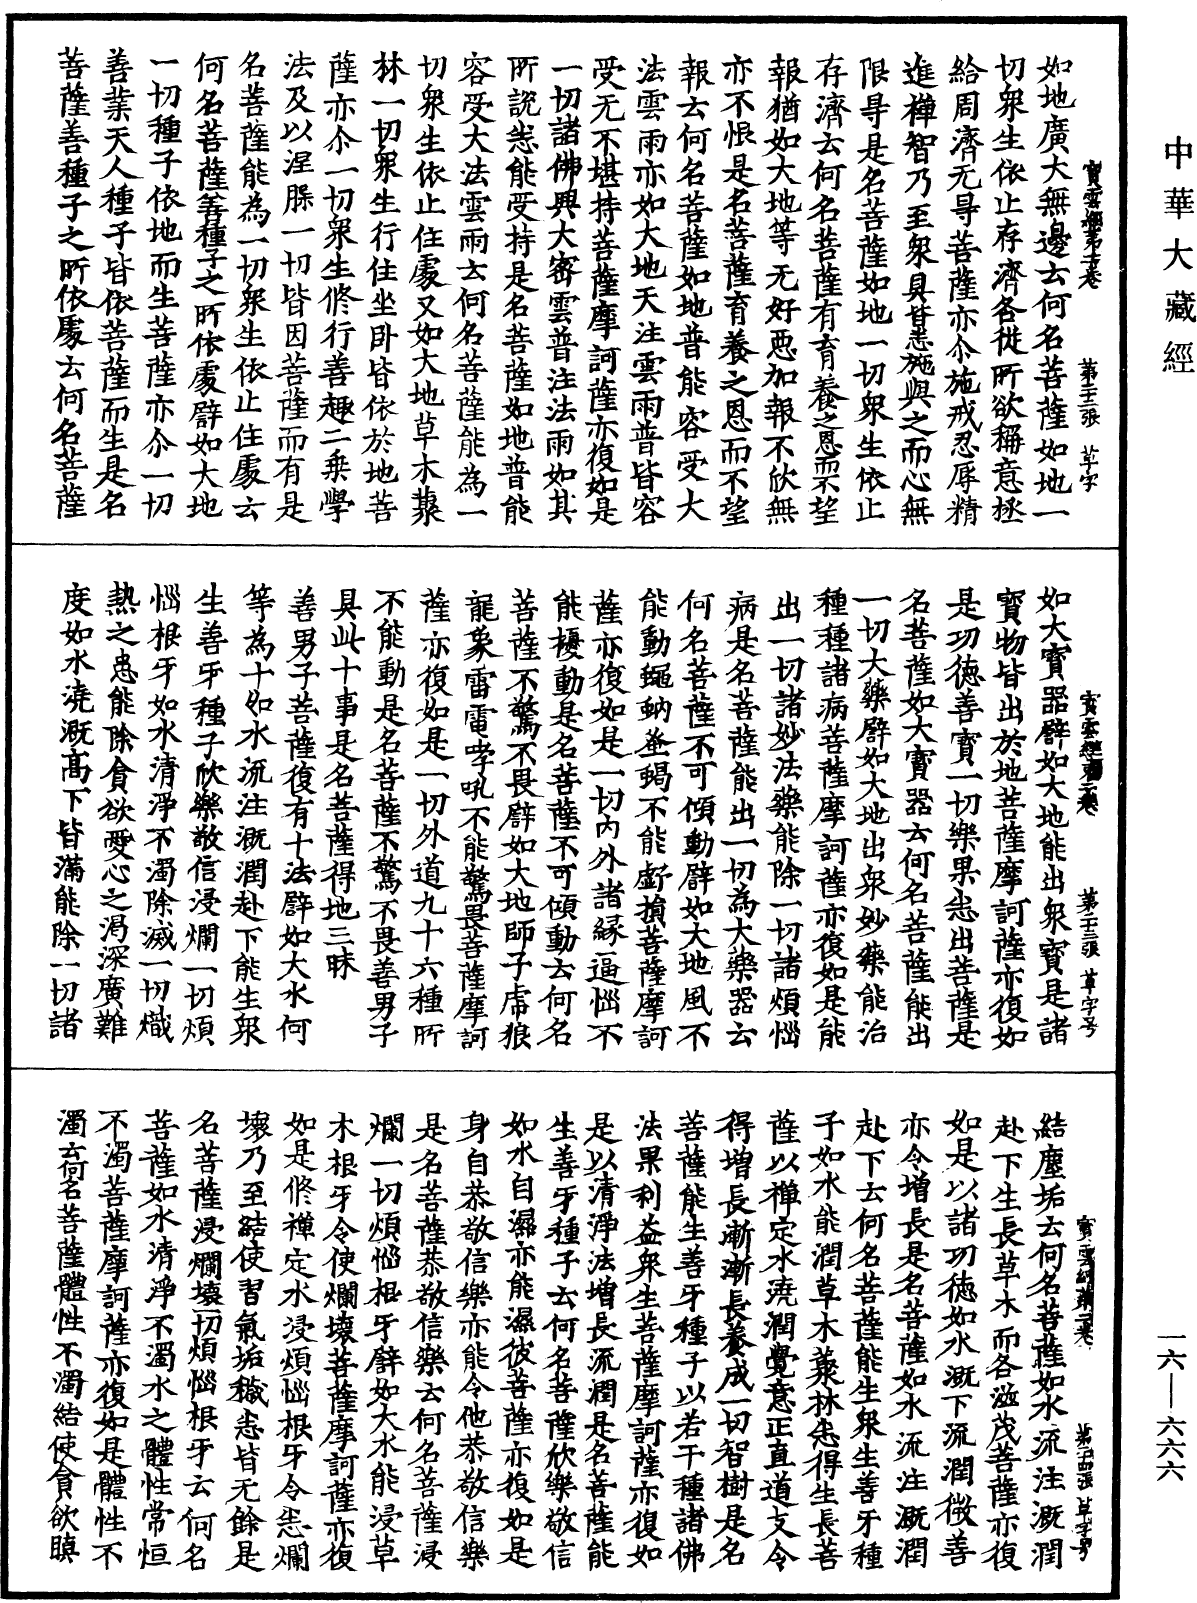 中華大藏經
寶雲經第二卷 第二十二張 草字
如地廣大無邊云何名菩薩如地一
切眾生依止存濟各從所欲稱意拯
給周濟无㝵菩薩亦尒施戒忍辱精
進禪智乃至眾具甘悉施與之而心無
限㝵是名菩薩如地一切眾生依止
存濟云何名菩薩有育養之恩而不望
報猶如大地等无好惡加報不欣無
亦不恨是名菩薩育養之恩而不望
報云何名菩薩如地普能容受大
法雲雨亦如大地天注雲雨普皆容
受无不堪持菩薩摩訶薩亦復如是
一切諸佛興大密雲普注法雨如其
所說悉能受持是名菩薩如地普能
容受大法雲雨云何名菩薩能為一
切眾生依止住處又如大地草木藂
林一切眾生行住坐卧皆依於地菩
薩亦尒一切眾生修行善趣二乗學
法及以涅槃一切皆因菩薩而有是
名菩薩能為一切眾生依止住處云
何名菩薩善種子之所依處辟如大地
一切種子依地而生菩薩亦尒一切
善業天人種子皆依菩薩而生是名
菩薩善種子之所依處云何名菩薩
寶雲經第二卷 第二十三張 草字号
如大寶器辟如大地能出眾寶是諸
寶物皆出於地菩薩摩訶薩亦復如
是功德善寶一切樂果悉出菩薩是
名菩薩如大寶器云何名菩薩能出
一切大藥辟如大地出眾妙藥能治
種種諸病菩薩摩訶薩亦復如是能
出一切諸妙法藥能除一切諸煩惱
病是名菩薩能出一切為大藥器云
何名菩薩不可傾動辟如大地風不
能動蠅蚋蚤蝎不能虧損菩薩摩訶
薩亦復如是一切內外諸縁逼惱不
能擾動是名菩薩不可傾動云何名
菩薩不驚不畏辟如大地師子虎狼
龍象雷電哮吼不能驚畏菩薩摩訶
薩亦復如是一切外道九十六種所
不能動是名菩薩不驚不畏善男子
具此十事是名菩薩得地三昧
善男子菩薩復有十法辟如大水何
等為十如水流注溉潤赴下能生眾
生善牙種子欣樂敬信浸爛一切煩
惱根牙如水清淨不濁除滅一切熾
熱之患能除貪欲愛心之渴深廣難
度如水澆溉髙下皆滿能除一切諸
寶雲經第二卷 第二十四張 草字号
結塵垢云何名菩薩如水流注溉潤
赴下生長草木而各滋茂菩薩亦復
如是以諸功德如水溉下流潤微善
亦令增長是名菩薩如水流注溉潤
赴下云何名菩薩能生眾生善牙種
子如水能潤草木藂林悉得生長菩
薩以禪定水澆潤覺意正直道支令
得增長漸漸長養成一切智樹是名
菩薩能生善牙種子以若干種諸佛
法果利益眾生菩薩摩訶薩亦復如
是以清淨法增長流潤是名菩薩能
生善牙種子云何名菩薩欣樂敬信
如水自濕亦能濕彼菩薩亦復如是
身自恭敬信樂亦能令他恭敬信樂
是名菩薩恭敬信樂云何名菩薩浸
爛一切煩惱根牙辟如大水能浸草
木根牙令使爛壞菩薩摩訶薩亦復
如是修禪定水浸煩惱根牙令悉爛
壞乃至結使習氣垢穢悉皆无餘是
名菩薩浸爛壞一切煩惱根牙云何名
菩薩如水清淨不濁水之體性常恒
不濁菩薩摩訶薩亦復如是體性不
濁云何名菩薩體性不濁結使貪欲瞋
一六—六六六